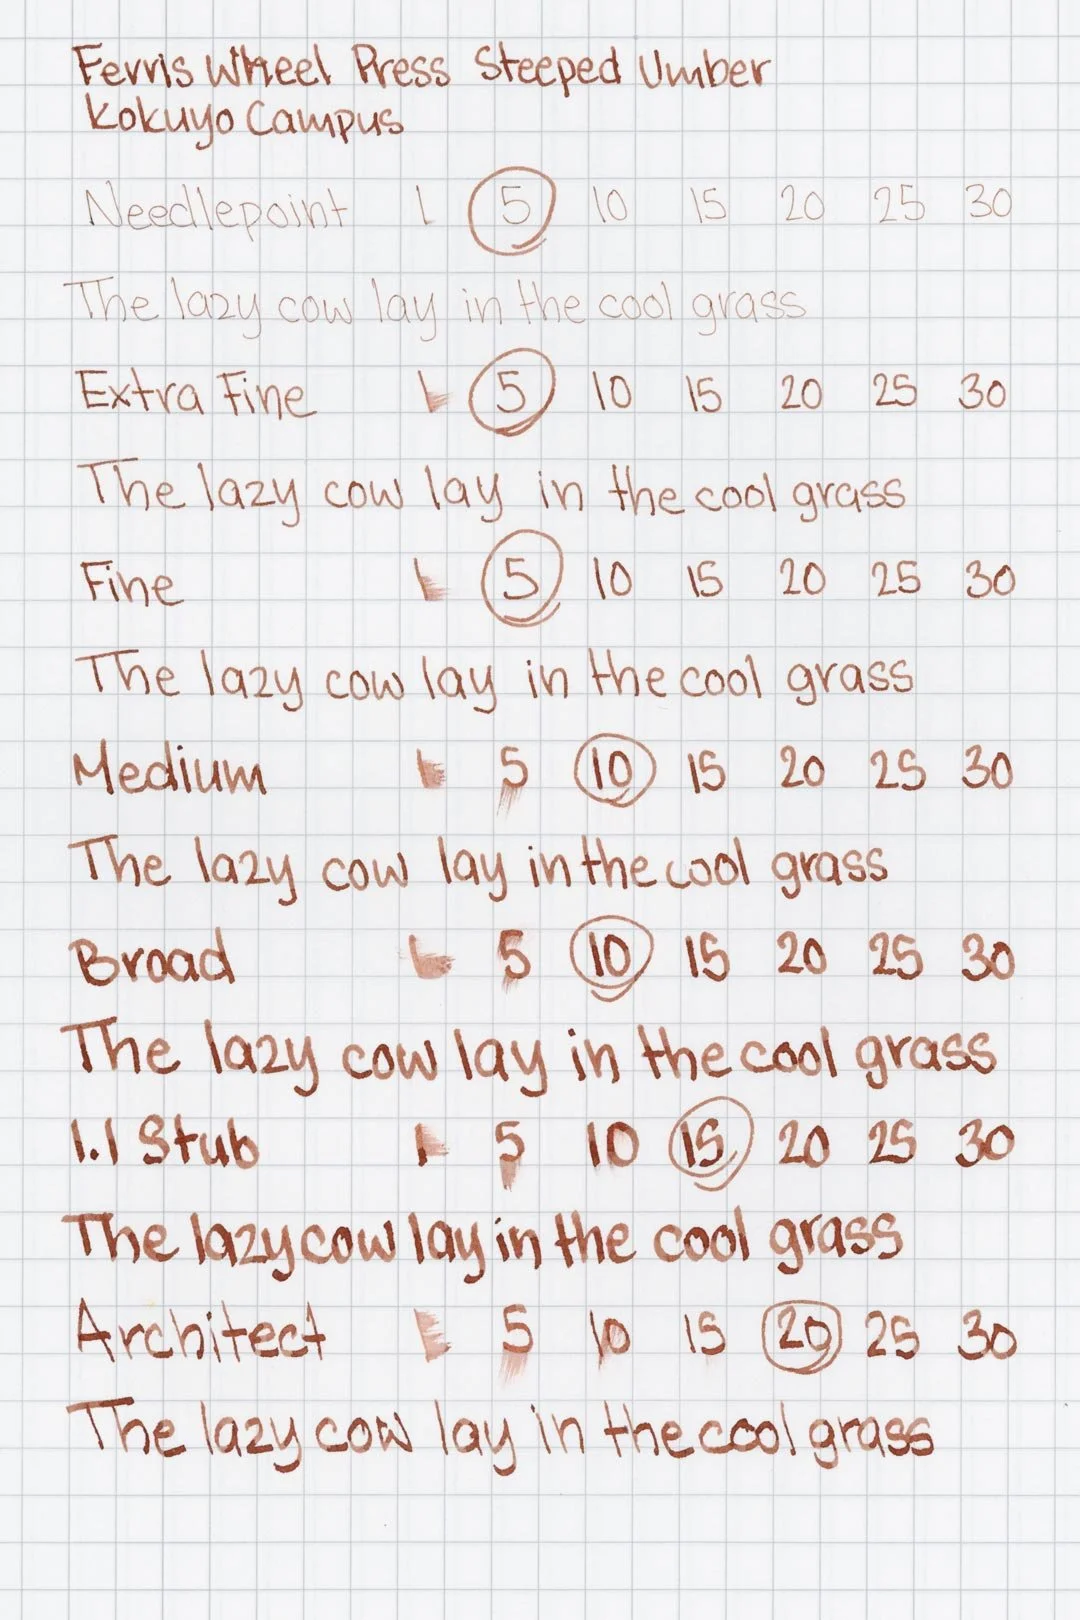 Ferris Wheel Press Steeped Umber
Kokuyo Campus
Needlepoint 1 5 10 15 20 25 30
The lazy cow lay in the cool grass
Extra Fine 1 5 10 15 20 25 30
The lazy cow lay in the cool grass
Fine 1 5 10 15 20 25 30
The lazy cow lay in the cool grass
Medium 1 5 10 15 20 25 30
The lazy cow lay in the cool grass
Broad 1 5 10 15 20 25 30
The lazy cow lay in the cool grass
1.1 Stub 1 5 10 15 20 25 30
The lazy cow lay in the cool grass
Architect 1 5 10 15 20 25 30
The lazy cow lay in the cool grass